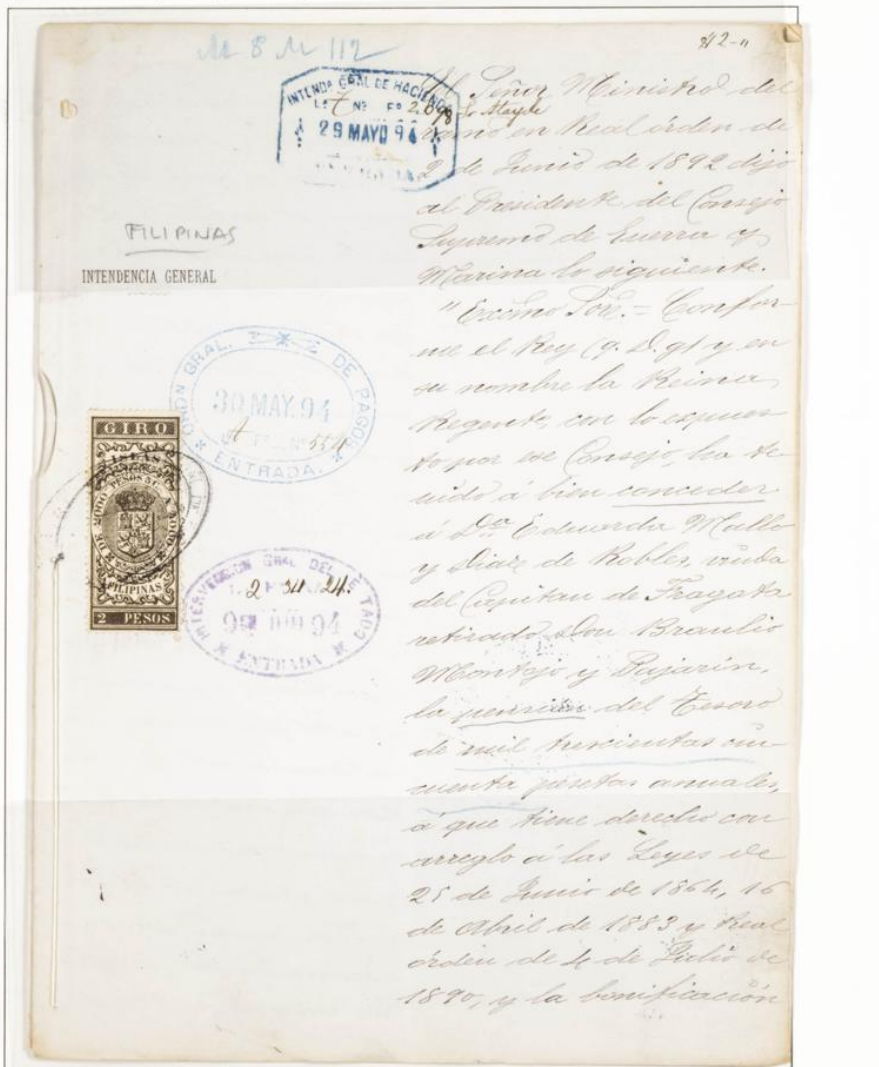 M 8 M 112
812-"
INTENDA GRAL DE HACIENDA
Lo 7 No Fo 2.078
29 MAYO 94
FILIPINAS
INTENDENCIA GENERAL
ORDON GRAL. DE PAGOS
30 MAY. 94
No 554
ENTRADA.
GIRO
ISLAS
FILIPINAS
2 PESOS
INTERVENCION GRAL DEL ESTADO
94
ENTRADA
El Señor Ministro del
ramo en Real órden de
2 de Junio de 1892 dijo
al Presidente del Consejo
Supremo de Guerra y
Marina lo siguiente.
"Excmo Sor. = Confor-
me el Rey (q. D. g) y en
su nombre la Reina
Regente, con lo expues
to por ese Consejo, ha te-
nido á bien conceder
á Da Eduarda Mallo
y Diaz de Robles, viuda
del Capitan de Fragata
retirado Don Braulio
Montojo y Pajarin,
la pension del Tesoro
de mil trescientas cin-
cuenta pesetas anuales,
á que tiene derecho con
arreglo á las Leyes de
25 de Junio de 1864, 16
de Abril de 1883 y Real
órden de 4 de Julio de
1890, y la bonificación